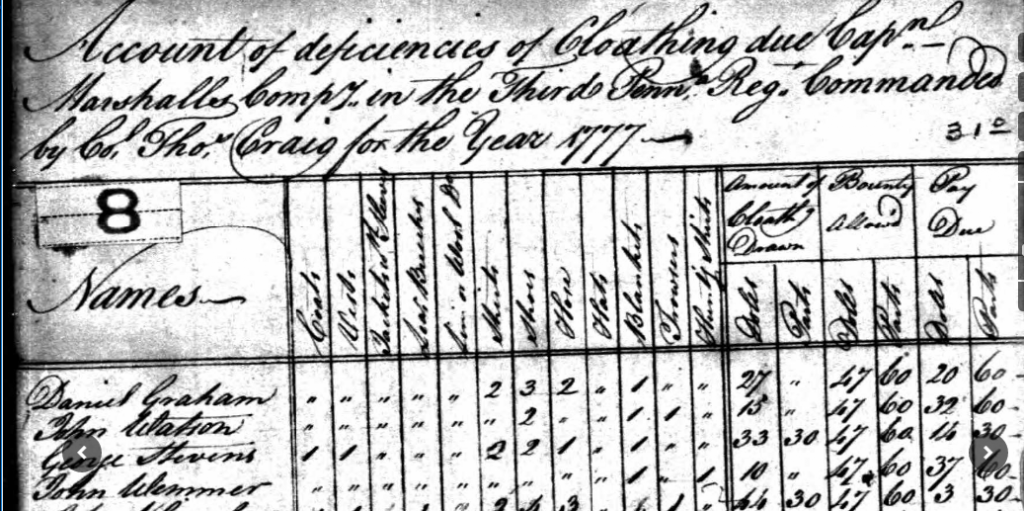 Account of deficiencies of Cloathing due Capn
Marshalles Compy. in the Third Penna. Reg. Commanded
by Col. Thos. Craig for the Year 1777
31
8
Names
Coats
Vests
Jackets
Leat. Breeches
Shirts
Shoes
Hose
Hats
Blankets
Trowsers
Huntg Shirts
Amount of Cloathg Drawn
Bounty Allowd
Pay Due
Dols Parts Dols Parts Dols Parts
Daniel Graham " " " " " 2 3 2 " 1 " " 27 " 47 60 20 60
John Watson " " " " " " 2 " " 1 1 " 15 " 47 60 32 60
George Stevens 1 1 " " " 2 2 1 " 1 " " 33 30 47 60 14 30
John Wemmer " " " " " " " " " 1 " 1 10 " 47 60 37 60
2 4 3 1 44 30 47 60 3 30